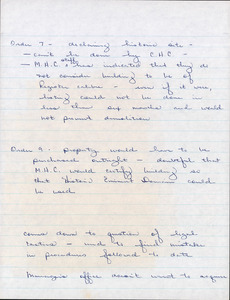 Order 7 - declaring historic site -
- can't be done by C.H.C. -
- M.H.C. staff has indicated that they do
not consider building to be of
Register calibre - even if it were,
listing could not be done in
less than six months and would
not prevent demolition
Order 8 - property would have to be
purchased outright - doubtful that
M.H.C. would certify building so
that "Historic" Eminent Domain could
be used
comes down to question of legal
tactics - need to find mistake
in procedures followed to date
Manager's office doesn't want to acquire